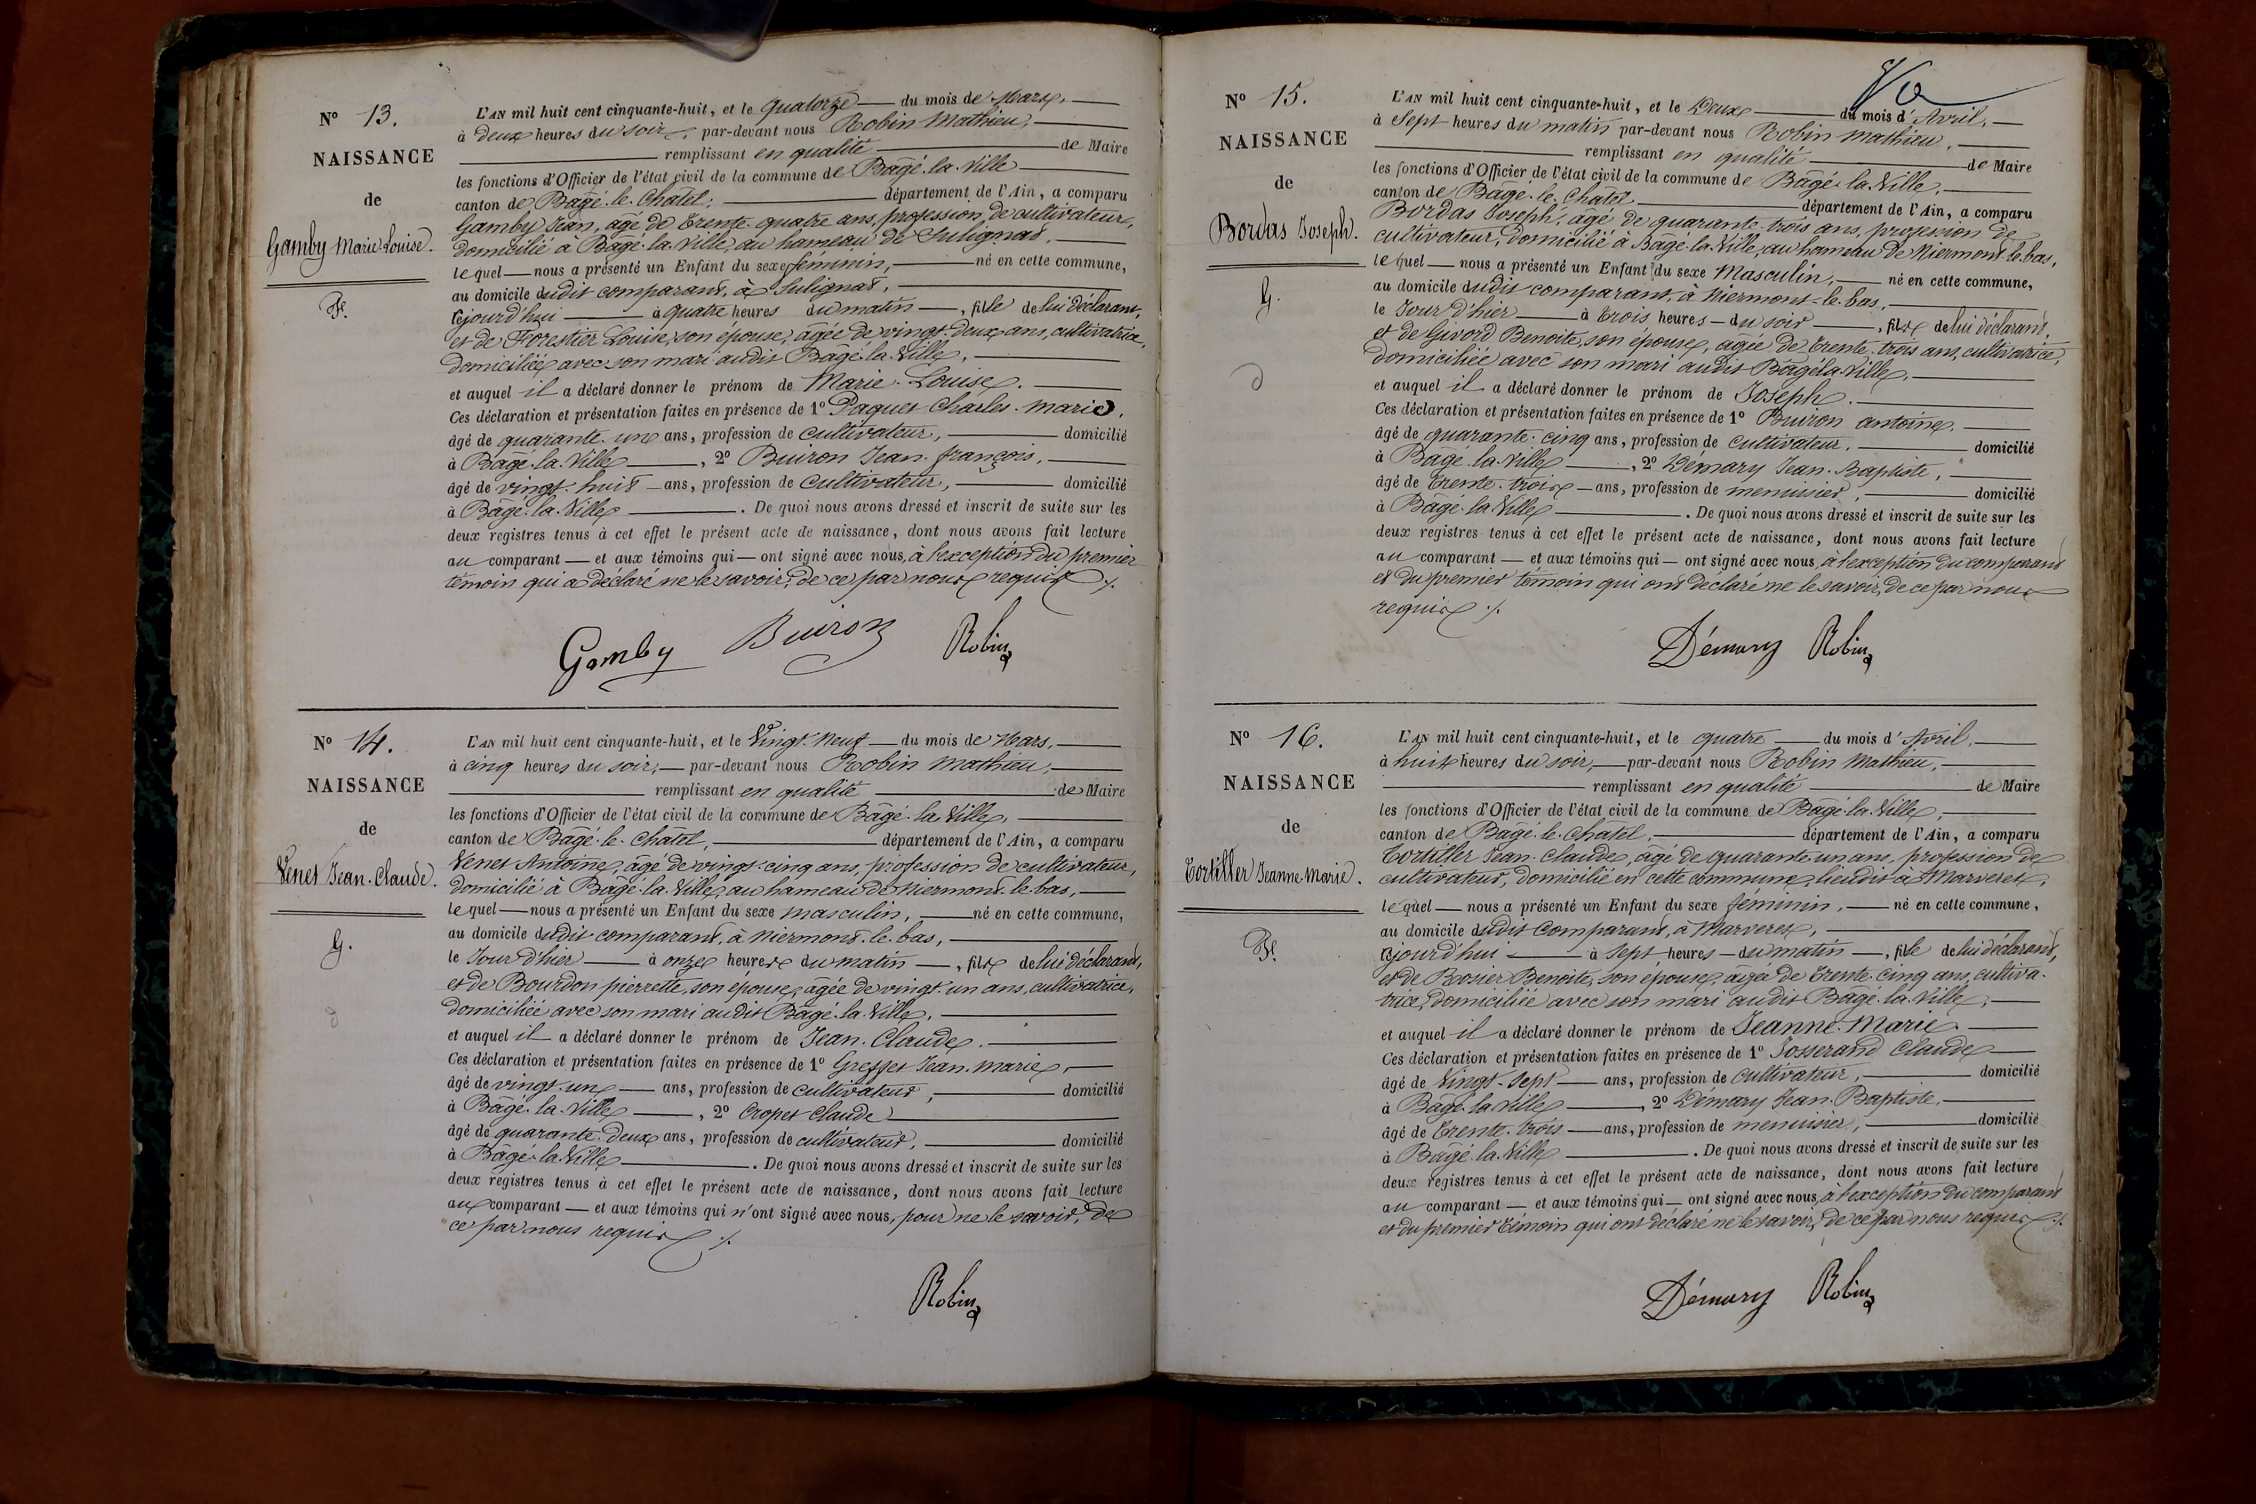 N° 13.
NAISSANCE
de
Gamby Marie Louise.
F.
L'AN mil huit cent cinquante-huit, et le quatorze du mois de Mars,
à deux heures du soir, par-devant nous Robin Mathieu,
remplissant en qualité de Maire
les fonctions d'Officier de l'état civil de la commune de Bâgé-la-Ville
canton de Bâgé-le-Chatel, département de l'Ain, a comparu
Gamby Jean, agé de trente-quatre ans, profession de cultivateur,
domicilié à Bâgé-la-Ville au hameau de Sulignat,
lequel nous a présenté un Enfant du sexe féminin, né en cette commune,
au domicile dudit comparant, à Sulignat,
cejourd'hui à quatre heures du matin, fille de lui déclarant,
et de Forestier Louise, son épouse, âgée de vingt-deux ans, cultivatrice,
domiciliée avec son mari audit Bâgé-la-Ville,
et auquel il a déclaré donner le prénom de Marie-Louise.
Ces déclaration et présentation faites en présence de 1° Paquet Charles-Marie,
âgé de quarante-un ans, profession de cultivateur, domicilié
à Bâgé-la-Ville, 2° Buiron Jean-françois,
âgé de vingt-huit ans, profession de cultivateur, domicilié
à Bâgé-la-Ville. De quoi nous avons dressé et inscrit de suite sur les
deux registres tenus à cet effet le présent acte de naissance, dont nous avons fait lecture
au comparant et aux témoins qui ont signé avec nous, à l'exception du premier
témoin qui a déclaré ne le savoir, de ce par nous requis ./.
Gamby Buiron Robin
N° 14.
NAISSANCE
de
Venet Jean-Claude.
G.
d
L'AN mil huit cent cinquante-huit, et le Vingt-Neuf du mois de Mars,
à cinq heures du soir, par-devant nous Robin Mathieu,
remplissant en qualité de Maire
les fonctions d'Officier de l'état civil de la commune de Bâgé-la-Ville,
canton de Bâgé-le-Chatel, département de l'Ain, a comparu
Venet Antoine, âgé de vingt-cinq ans, profession de cultivateur,
domicilié à Bâgé-la-Ville, au hameau de Niermont-le-bas,
lequel nous a présenté un Enfant du sexe masculin, né en cette commune,
au domicile dudit comparant, à Niermont-le-bas,
le Jour d'hier à onze heures du matin, fils de lui déclarant,
et de Bourdon pierrette, son épouse, agée de vingt-un ans, cultivatrice,
domiciliée avec son mari audit Bâgé-la-Ville,
et auquel il a déclaré donner le prénom de Jean-Claude.
Ces déclaration et présentation faites en présence de 1° Greffet Jean-Marie,
âgé de vingt-un ans, profession de cultivateur, domicilié
à Bâgé-la-Ville, 2° Cropet Claude
âgé de quarante-deux ans, profession de cultivateur, domicilié
à Bâgé-la-Ville. De quoi nous avons dressé et inscrit de suite sur les
deux registres tenus à cet effet le présent acte de naissance, dont nous avons fait lecture
au comparant et aux témoins qui n'ont signé avec nous, pour ne le savoir, de
ce par nous requis ./.
Robin
N° 15.
NAISSANCE
de
Bordas Joseph.
G.
d
L'AN mil huit cent cinquante-huit, et le Deux du mois d'Avril,
à Sept heures du matin par-devant nous Robin Mathieu,
remplissant en qualité de Maire
les fonctions d'Officier de l'état civil de la commune de Bâgé-la-Ville,
canton de Bâgé-le-Châtel département de l'Ain, a comparu
Bordas Joseph, âgé de quarante-trois ans, profession de
cultivateur, domicilié à Bâgé-la-Ville, au hameau de Niermont-le-bas,
lequel nous a présenté un Enfant du sexe Masculin, né en cette commune,
au domicile dudit comparant, à Niermont-le-bas,
le Jour d'hier à trois heures du soir, fils de lui déclarant,
et de Givord Benoite, son épouse, agée de trente-trois ans, cultivatrice,
domiciliée avec son mari audit Bâgé-la-Ville,
et auquel il a déclaré donner le prénom de Joseph.
Ces déclaration et présentation faites en présence de 1° Buiron antoine,
âgé de quarante-cinq ans, profession de cultivateur, domicilié
à Bâgé-la-Ville, 2° Démary Jean-Baptiste,
âgé de trente-trois ans, profession de menuisier, domicilié
à Bâgé-la-Ville. De quoi nous avons dressé et inscrit de suite sur les
deux registres tenus à cet effet le présent acte de naissance, dont nous avons fait lecture
au comparant et aux témoins qui ont signé avec nous, à l'exception du comparant
et du premier témoin qui ont déclaré ne le savoir, de ce par nous
requis ./.
Démary Robin
N° 16.
NAISSANCE
de
Tortiller Jeanne Marie.
F.
L'AN mil huit cent cinquante-huit, et le quatre du mois d'Avril,
à huit heures du soir, par-devant nous Robin Mathieu,
remplissant en qualité de Maire
les fonctions d'Officier de l'état civil de la commune de Bâgé-la-Ville,
canton de Bâgé-le-Châtel, département de l'Ain, a comparu
Tortiller Jean-Claude, âgé de quarante-un ans, profession de
cultivateur, domicilié en cette commune, lieudit à Marveret,
lequel nous a présenté un Enfant du sexe féminin, né en cette commune,
au domicile dudit Comparant, à Marveret,
cejourd'hui à sept heures du matin, fille de lui déclarant,
et de Rosier Benoite, son épouse, agée de trente-cinq ans, cultiva-
trice, domiciliée avec son mari audit Bâgé-la-Ville,
et auquel il a déclaré donner le prénom de Jeanne-Marie.
Ces déclaration et présentation faites en présence de 1° Josserand Claude
âgé de Vingt-Sept ans, profession de Cultivateur, domicilié
à Bâgé-la-Ville, 2° Démary Jean-Baptiste,
âgé de trente-trois ans, profession de menuisier, domicilié
à Bâgé-la-Ville. De quoi nous avons dressé et inscrit de suite sur les
deux registres tenus à cet effet le présent acte de naissance, dont nous avons fait lecture
au comparant et aux témoins qui ont signé avec nous, à l'exception du comparant
et du premier témoin qui ont déclaré ne le savoir, de ce par nous requis ./.
Démary Robin